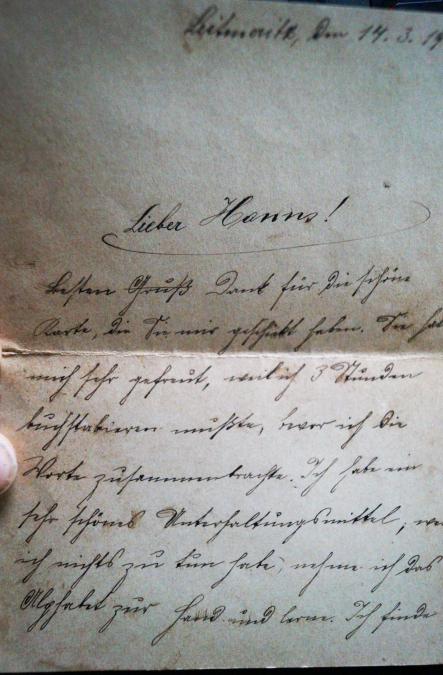 Leitmeritz, den 14. 3. 19
Lieber Hanns!
Besten Gruß Dank für die schöne
Karte, die Sie mir geschickt haben. Sie ha
mich sehr gefreut, weil ich 3 Stunden
buchstabieren mußte, bevor ich die
Worte zusammenbrachte. Ich habe ein
sehr schönes Unterhaltungsmittel, we
ich nichts zu tun habe, nehme ich das
Alphabet zur Hand und lerne. Ich finde